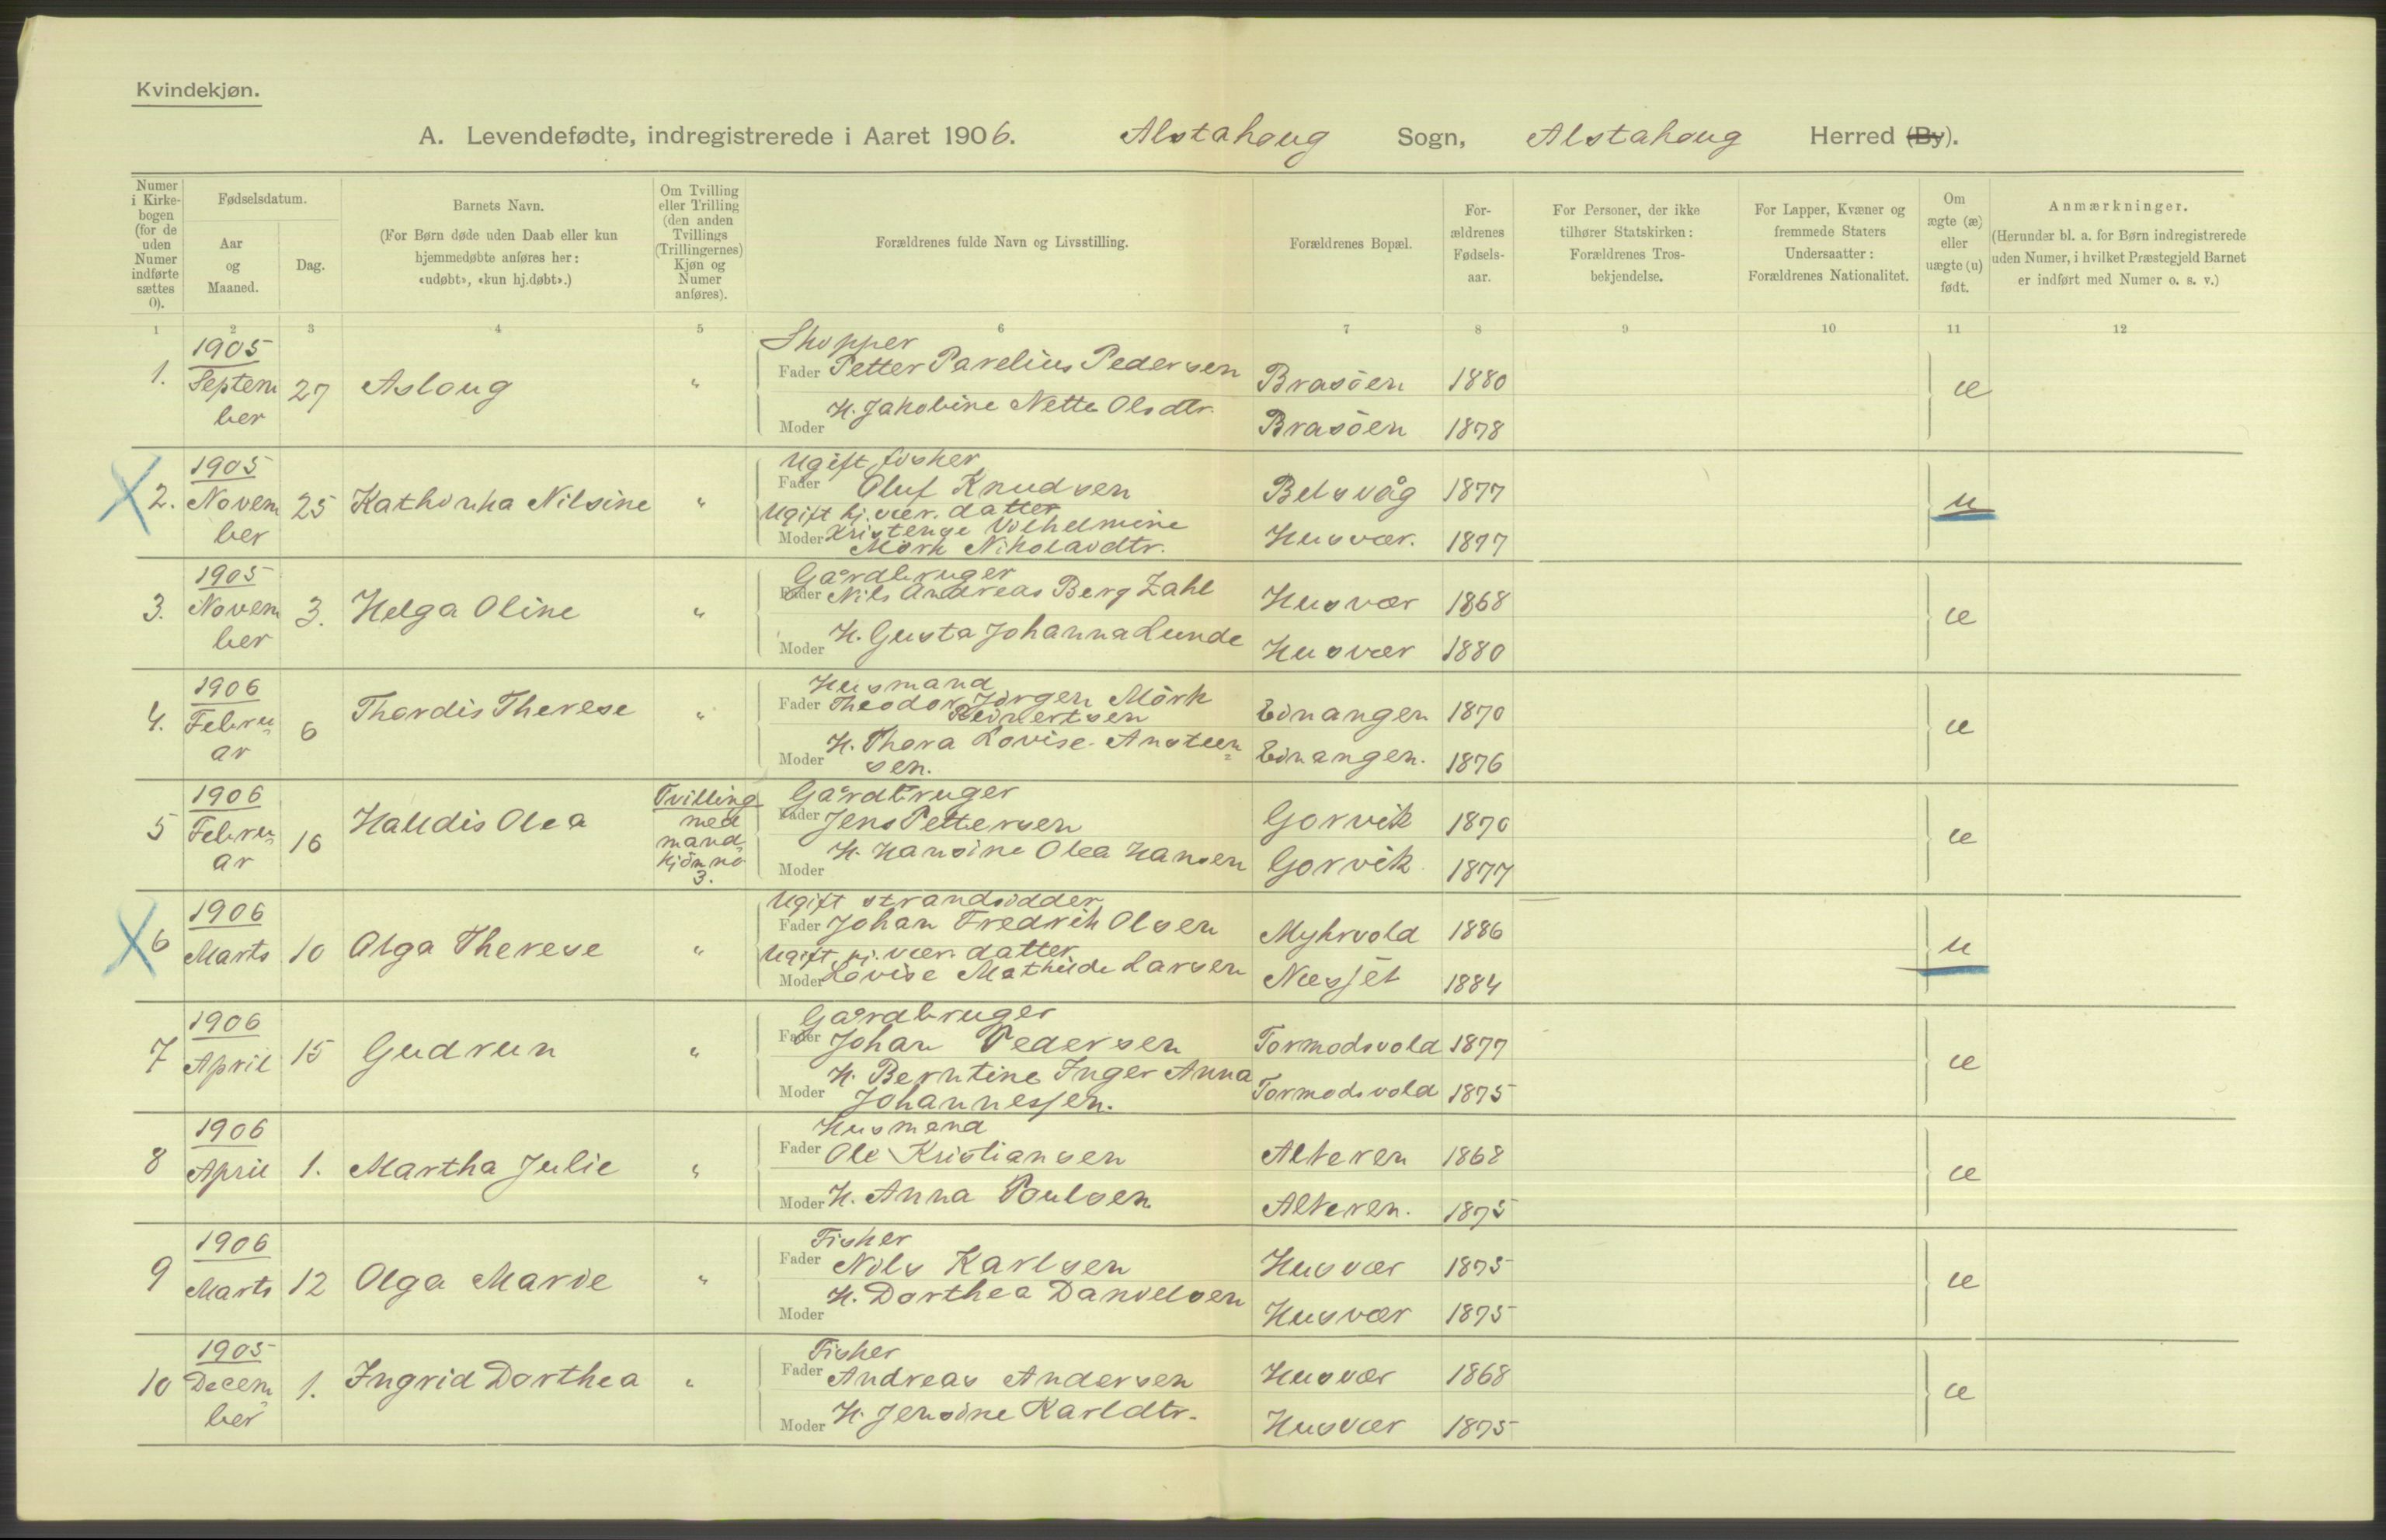 Kvindekjøn.
A. Levendefødte, indregistrerede i Aaret 1906. Alstahoug Sogn, Alstahoug Herred (By).
Numer i Kirke-bogen (for de uden Numer indførte sættes 0).
Fødselsdatum.
Aar og Maaned.
Dag.
Barnets Navn.
(For Børn døde uden Daab eller kun hjemmedøbte anføres her: «udøbt», «kun hj.døbt».)
Om Tvilling eller Trilling (den anden Tvillings (Trillingernes) Kjøn og Numer anføres).
Forældrenes fulde Navn og Livsstilling.
Forældrenes Bopæl.
For-ældrenes Fødsels-aar.
For Personer, der ikke tilhører Statskirken: Forældrenes Tros-bekjendelse.
For Lapper, Kvæner og fremmede Staters Undersaatter: Forældrenes Nationalitet.
Om ægte (æ) eller uægte (u) født.
Anmærkninger.
(Herunder bl. a. for Børn indregistrerede uden Numer, i hvilket Præstegjeld Barnet er indført med Numer o. s. v.)
1 2 3 4 5 6 7 8 9 10 11 12
1. 1905 Septem ber 27 Asloug "
Skopper
Fader Petter Parelius Pedersen Brasöen 1880 æ
Moder H. Jakobine Nette Olsdtr. Brasöen 1878
2. 1905 Novem ber 25 Kathinka Nilsine "
Ugift fisker
Fader Oluf Knudsen Belsvåg 1877 u
Ugift hj. vær. datter
Moder Kristense Vilhelmine Husvær. 1877
Mörk Nikolaidtr.
3. 1905 Novem ber 3. Helga Oline "
Gårdbruger
Fader Nils Andreas Berg Zahl Husvær 1868 æ
Moder H. Gusta Johanna Lunde Husvær 1880
4. 1906 Febru ar 6 Thordis Therese "
Husmand
Fader Theodor Jörgen Mörk Einangen 1870 æ
Reinertsen
Moder H. Thora Lovise Ansteen Einangen. 1876
sen.
5 1906 Febru ar 16 Halldis Olea Tvilling med mand kjön no 3.
Gårdbruger
Fader Jens Pettersen Gorvik 1870 æ
Moder H. Hansine Olea Hansen Gorvik 1877
6 1906 Marts 10 Olga Therese "
Ugift strandsidder
Fader Johan Fredrik Olsen Myhrvold 1886 u
Ugift hj. vær. datter
Moder Lovise Mathilde Larsen Næsjet 1884
7 1906 April 15 Gudrun "
Gårdbruger
Fader Johan Pedersen Tormodsvold 1877 æ
Moder H. Berntine Inger Anna Tormodsvold 1875
Johannessen.
8 1906 April 1. Martha Julie "
Husmand
Fader Ole Kristiansen Alteren 1868 æ
Moder H. Anna Poulsen Alteren. 1875
9 1906 Marts 12 Olga Marie "
Fisker
Fader Nils Karlsen Husvær 1875 æ
Moder H. Dorthea Danielsen Husvær 1875
10 1905 Decem ber 1. Ingrid Dorthea "
Fisker
Fader Andreas Andersen Husvær 1868 æ
Moder H. Jensine Karldtr. Husvær 1875